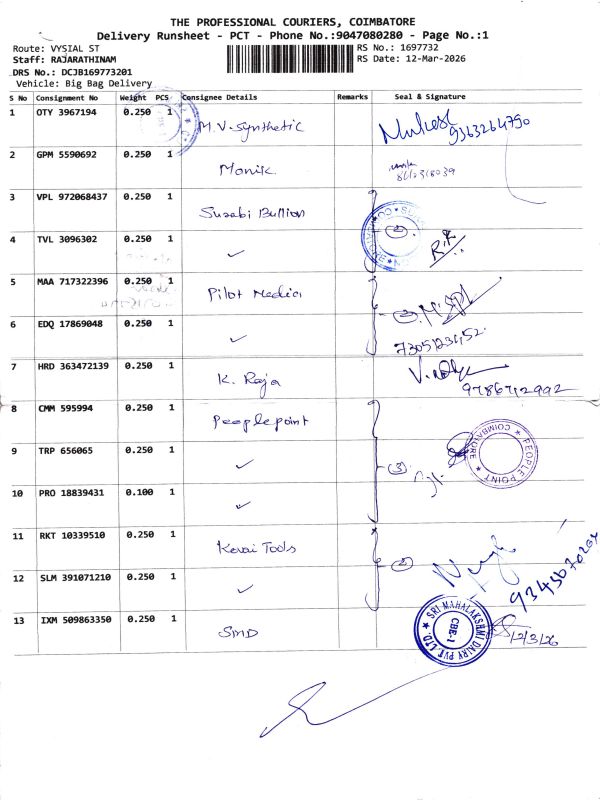 THE PROFESSIONAL COURIERS, COIMBATORE
Delivery Runsheet - PCT - Phone No.:9047080280 - Page No.:1
Route: VYSIAL ST
Staff: RAJARATHINAM
DRS No.: DCJB169773201
Vehicle: Big Bag Delivery
RS No.: 1697732
RS Date: 12-Mar-2026
S No Consignment No Weight PCS Consignee Details Remarks Seal & Signature
1 OTY 3967194 0.250 1 M.V-Synthetic 9363264790
2 GPM 5590692 0.250 1 Monik
3 VPL 972068437 0.250 1 Surabi Bullion
4 TVL 3096302 0.250 1 ✓ (2)
5 MAA 717322396 0.250 1 Pilot Media
6 EDQ 17869048 0.250 1 ✓ (2) 7305123452
7 HRD 363472139 0.250 1 K. Raja 9786712992
8 CMM 595994 0.250 1 Peoplepoint
9 TRP 656065 0.250 1 ✓ (3) PEOPLE POINT ★ COIMBATORE ★
10 PRO 18839431 0.100 1 ✓
11 RKT 10339510 0.250 1 Kovai Tools
12 SLM 391071210 0.250 1 ✓ (2)
13 IXM 509863350 0.250 1 SMD
SRI MAHALAKSHMI DAIRY PVT. LTD. ★
CBE-1
12/3/26